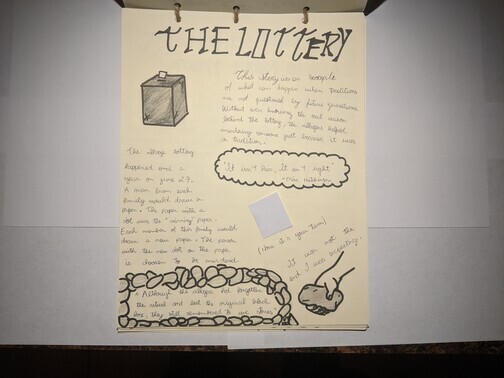 THE LOTTERY
This story is an example
of what can happen when traditions
are not questioned by future generations.
Without even knowing the real reason
behind the lottery, the villagers helped
murdering someone just because it was
a tradition.
The village lottery
happened once a
year on june 27.
A man from each
family would draw a
paper. The paper with a
dot was the "winning" paper.
Each member of this family would
draw a new paper. The person
with the new dot on the paper
is chosen to be murdered
"It isn't fair, It isn't right"
- Mrs. Hutchinson
(Now it's your turn)
It was not the
end I was expecting.
"Although the villagers had forgotten
the ritual and lost the original black
box, they still remembered to use stones"